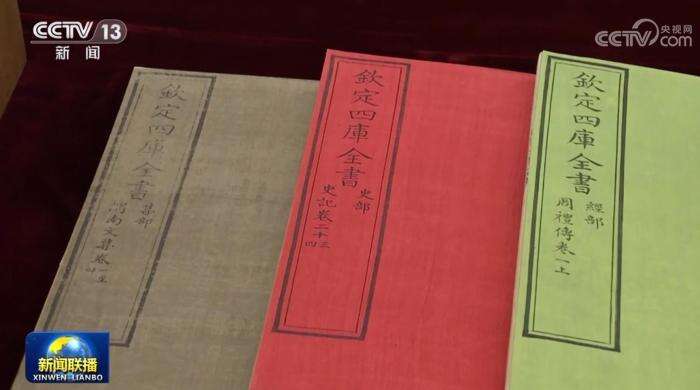 CCTV 13
新闻
央视网
CCTV.com
欽定四庫全書
集部
欽定四庫全書
史部
史記卷二十三
四
欽定四庫全書
經部
周禮傳卷一上
新闻联播
XINWEN LIANBO